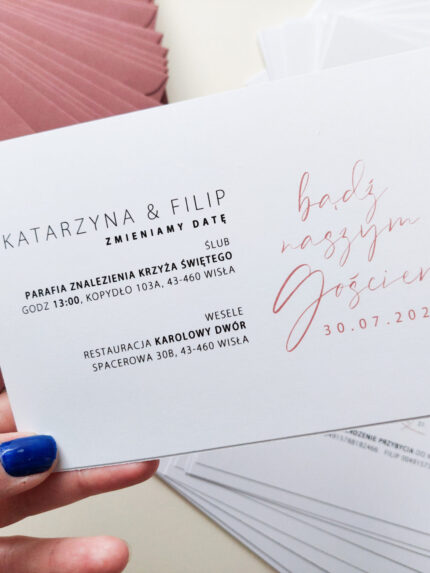 KATARZYNA & FILIP
ZMIENIAMY DATĘ
ŚLUB
PARAFIA ZNALEZIENIA KRZYŻA ŚWIĘTEGO
GODZ 13:00, KOPYDŁO 103A, 43-460 WISŁA
WESELE
RESTAURACJA KAROLOWY DWÓR
SPACEROWA 30B, 43-460 WISŁA
bądź
naszym
Gościem
30.07.202
PRZYBYCIA DO